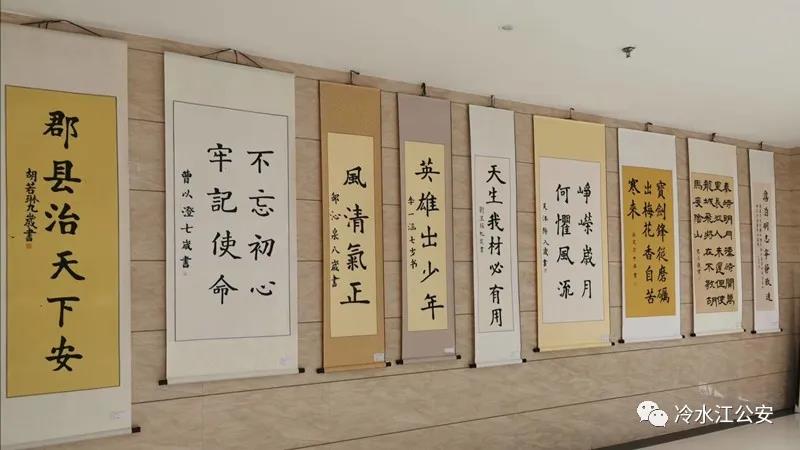 郡县治天下安
胡若琳九歲書
不忘初心
牢記使命
曾以澄七歲書
風清氣正
鄒沁泉八歲書
英雄出少年
李一涵七岁书
天生我材必有用
崢嶸歲月
何懼風流
寶劍鋒從磨礪
出梅花香自苦
寒来
秦時明月漢時關萬
里長征人未還但使
龍城飛將在不教胡
馬度陰山
明志寧静致遠
冷水江公安